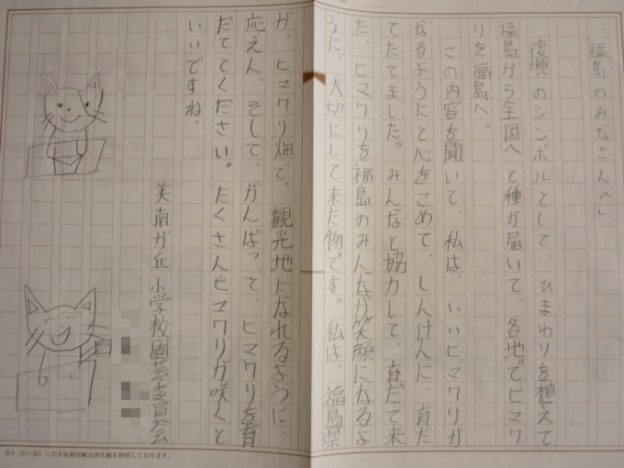 「福島のみなさんへ」
復興のシンボルとして、ひまわりを植えて、
福島から全国へと種が届いて、各地でヒマワ
リを福島へ。
この内容を聞いて、私は、いいヒマワリが
なるようにと心をこめて、しんけんに、育だ
てたてました。みんなと協力して、育だて来
た、ヒマワリを福島のみんなが笑顔になるよ
うに、大切にして来た物です。私は、福島県
が、ヒマワリ畑で、観光地になれるように、
応えん、そして、がんばって、ヒマワリを育
だててください。たくさんヒマワリが咲くと
いいですね。
美南が丘小学校園芸委員会
B4（20×20）こだま原稿用紙は再生紙を使用しております。